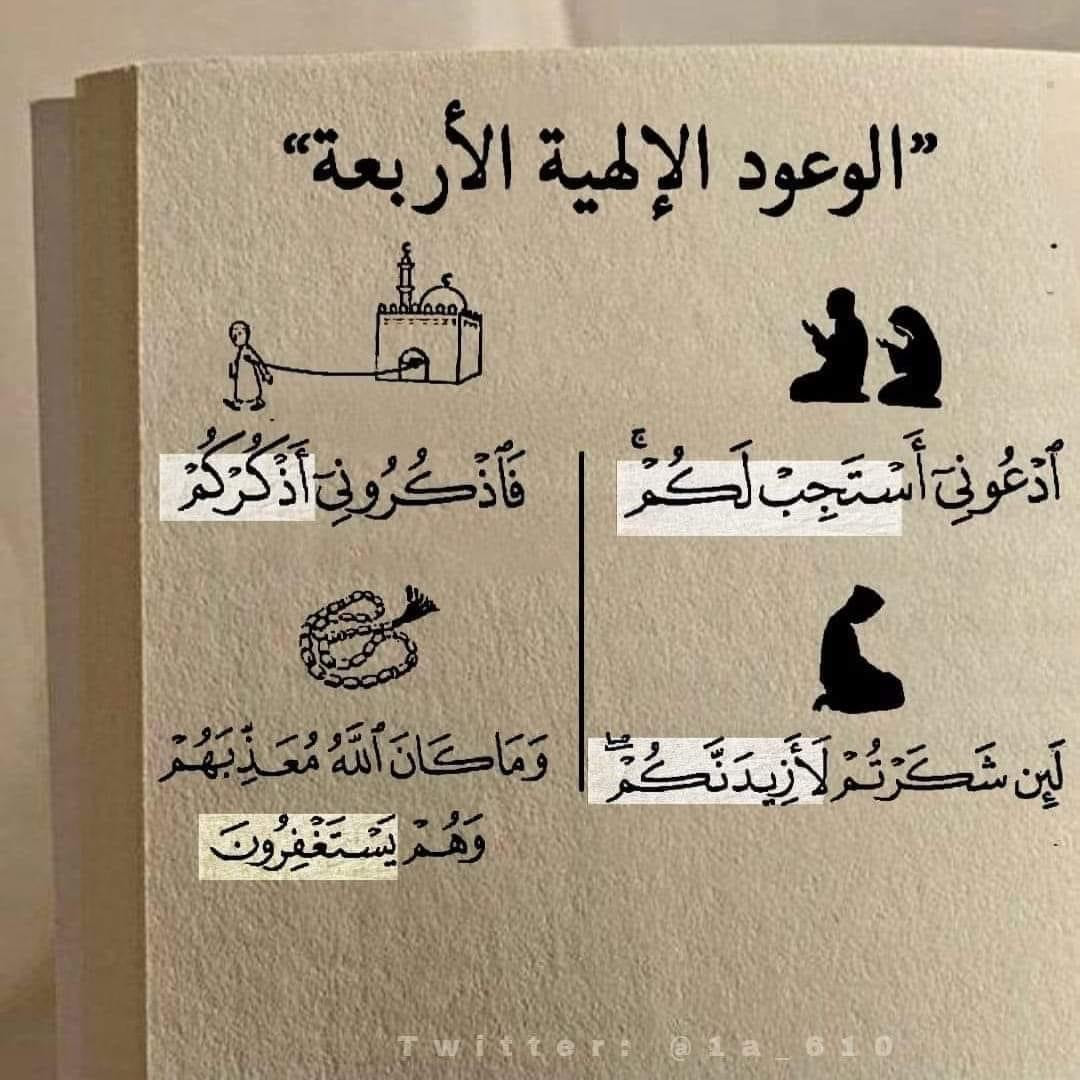 ”الوعود الإلهية الأربعة“
ٱدْعُونِىٓ أَسْتَجِبْ لَكُمْ ۚ
فَٱذْكُرُونِىٓ أَذْكُرْكُمْ
لَئِن شَكَرْتُمْ لَأَزِيدَنَّكُمْ ۖ
وَمَا كَانَ ٱللَّهُ مُعَذِّبَهُمْ
وَهُمْ يَسْتَغْفِرُونَ
Twitter: @1a_610